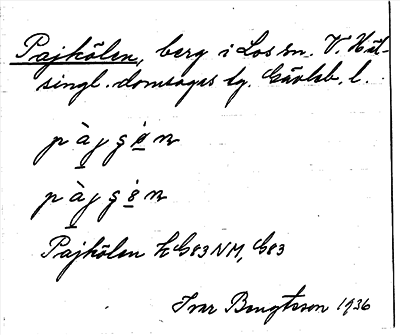 Pajkölen, berg i Los sn. V. Häl-
singl. domsagas tg. Gävleb. l.
pàjgøn
pàjgèn
Pajkölen hG83NM, G83
Ivar Bengtsson 1936